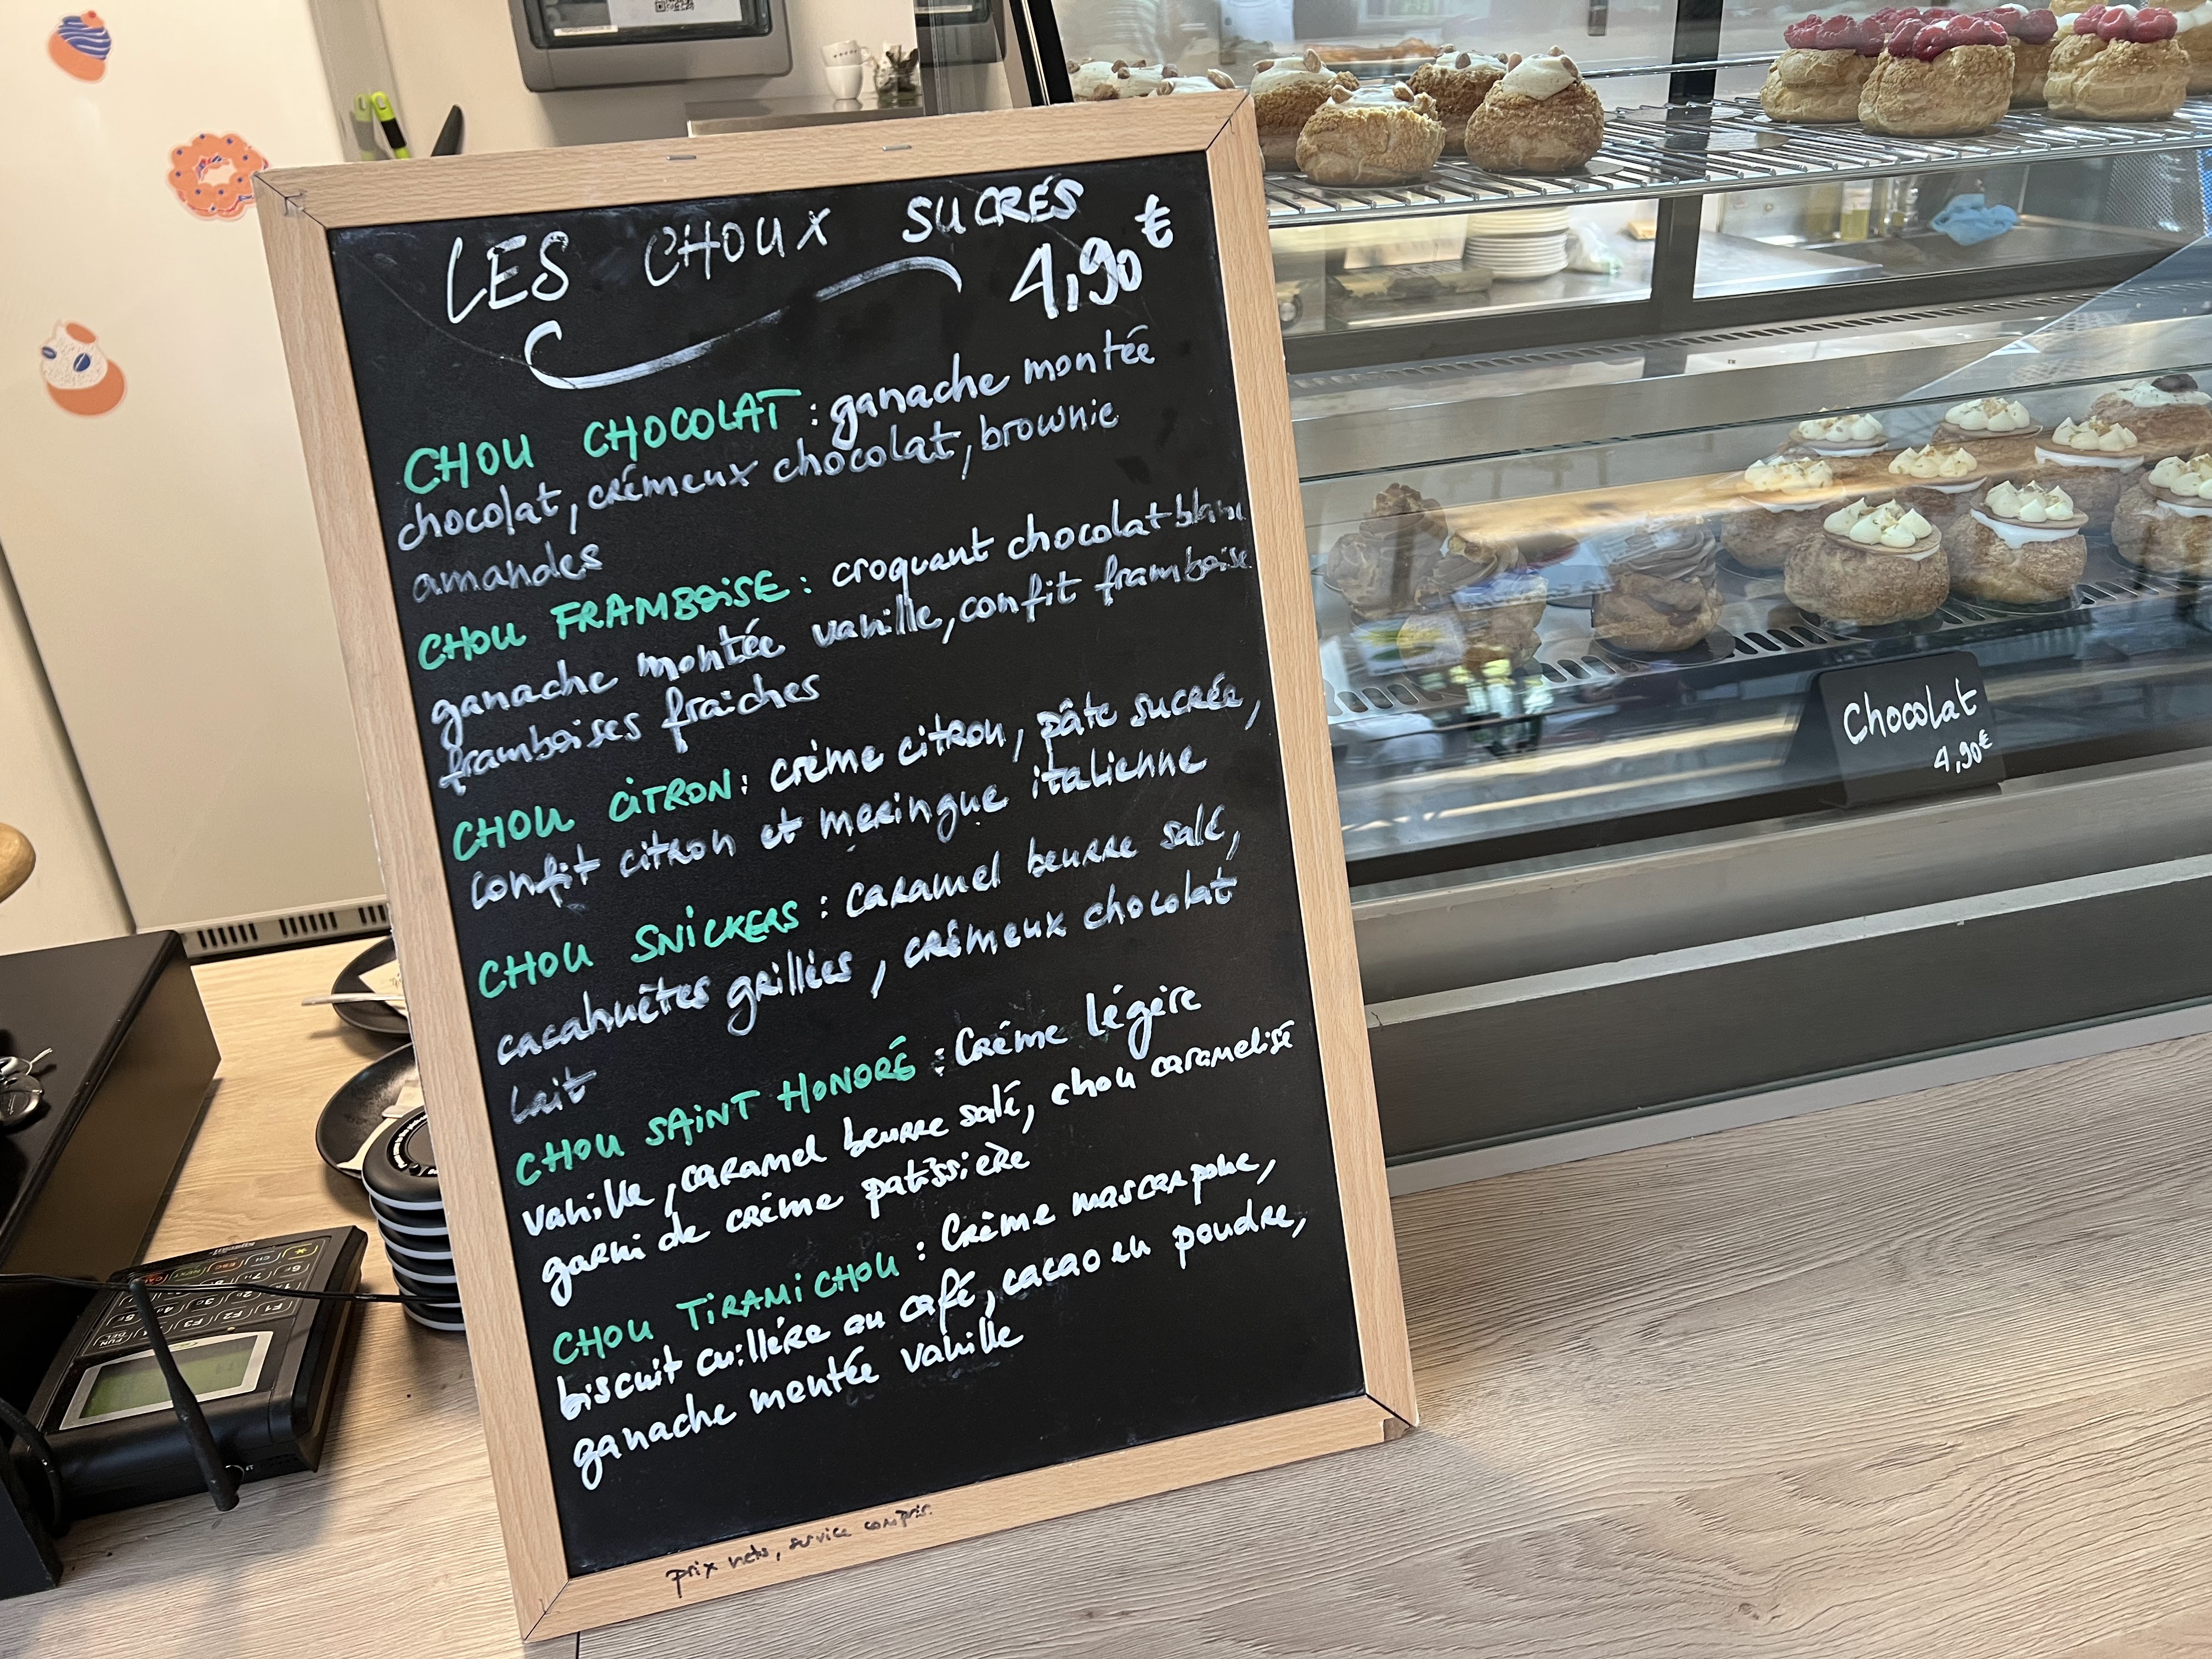 LES CHOUX SUCRÉS
4,90€
CHOU CHOCOLAT : ganache montée
chocolat, crémeux chocolat, brownie
amandes
CHOU FRAMBOISE : croquant chocolat blanc
ganache montée vanille, confit framboise
framboises fraiches
CHOU CITRON : crème citron, pâte sucrée,
confit citron et meringue italienne
CHOU SNICKERS : caramel beurre salé,
cacahuêtes grillées, crémeux chocolat
lait
CHOU SAINT HONORÉ : Crème légère
vanille, caramel beurre salé, chou caramelisé
garni de crème patissière
CHOU TIRAMICHOU : Crème mascarpone,
biscuit cuillère au café, cacao en poudre,
ganache montée vanille
prix nets, service compris.
Chocolat
4,90€